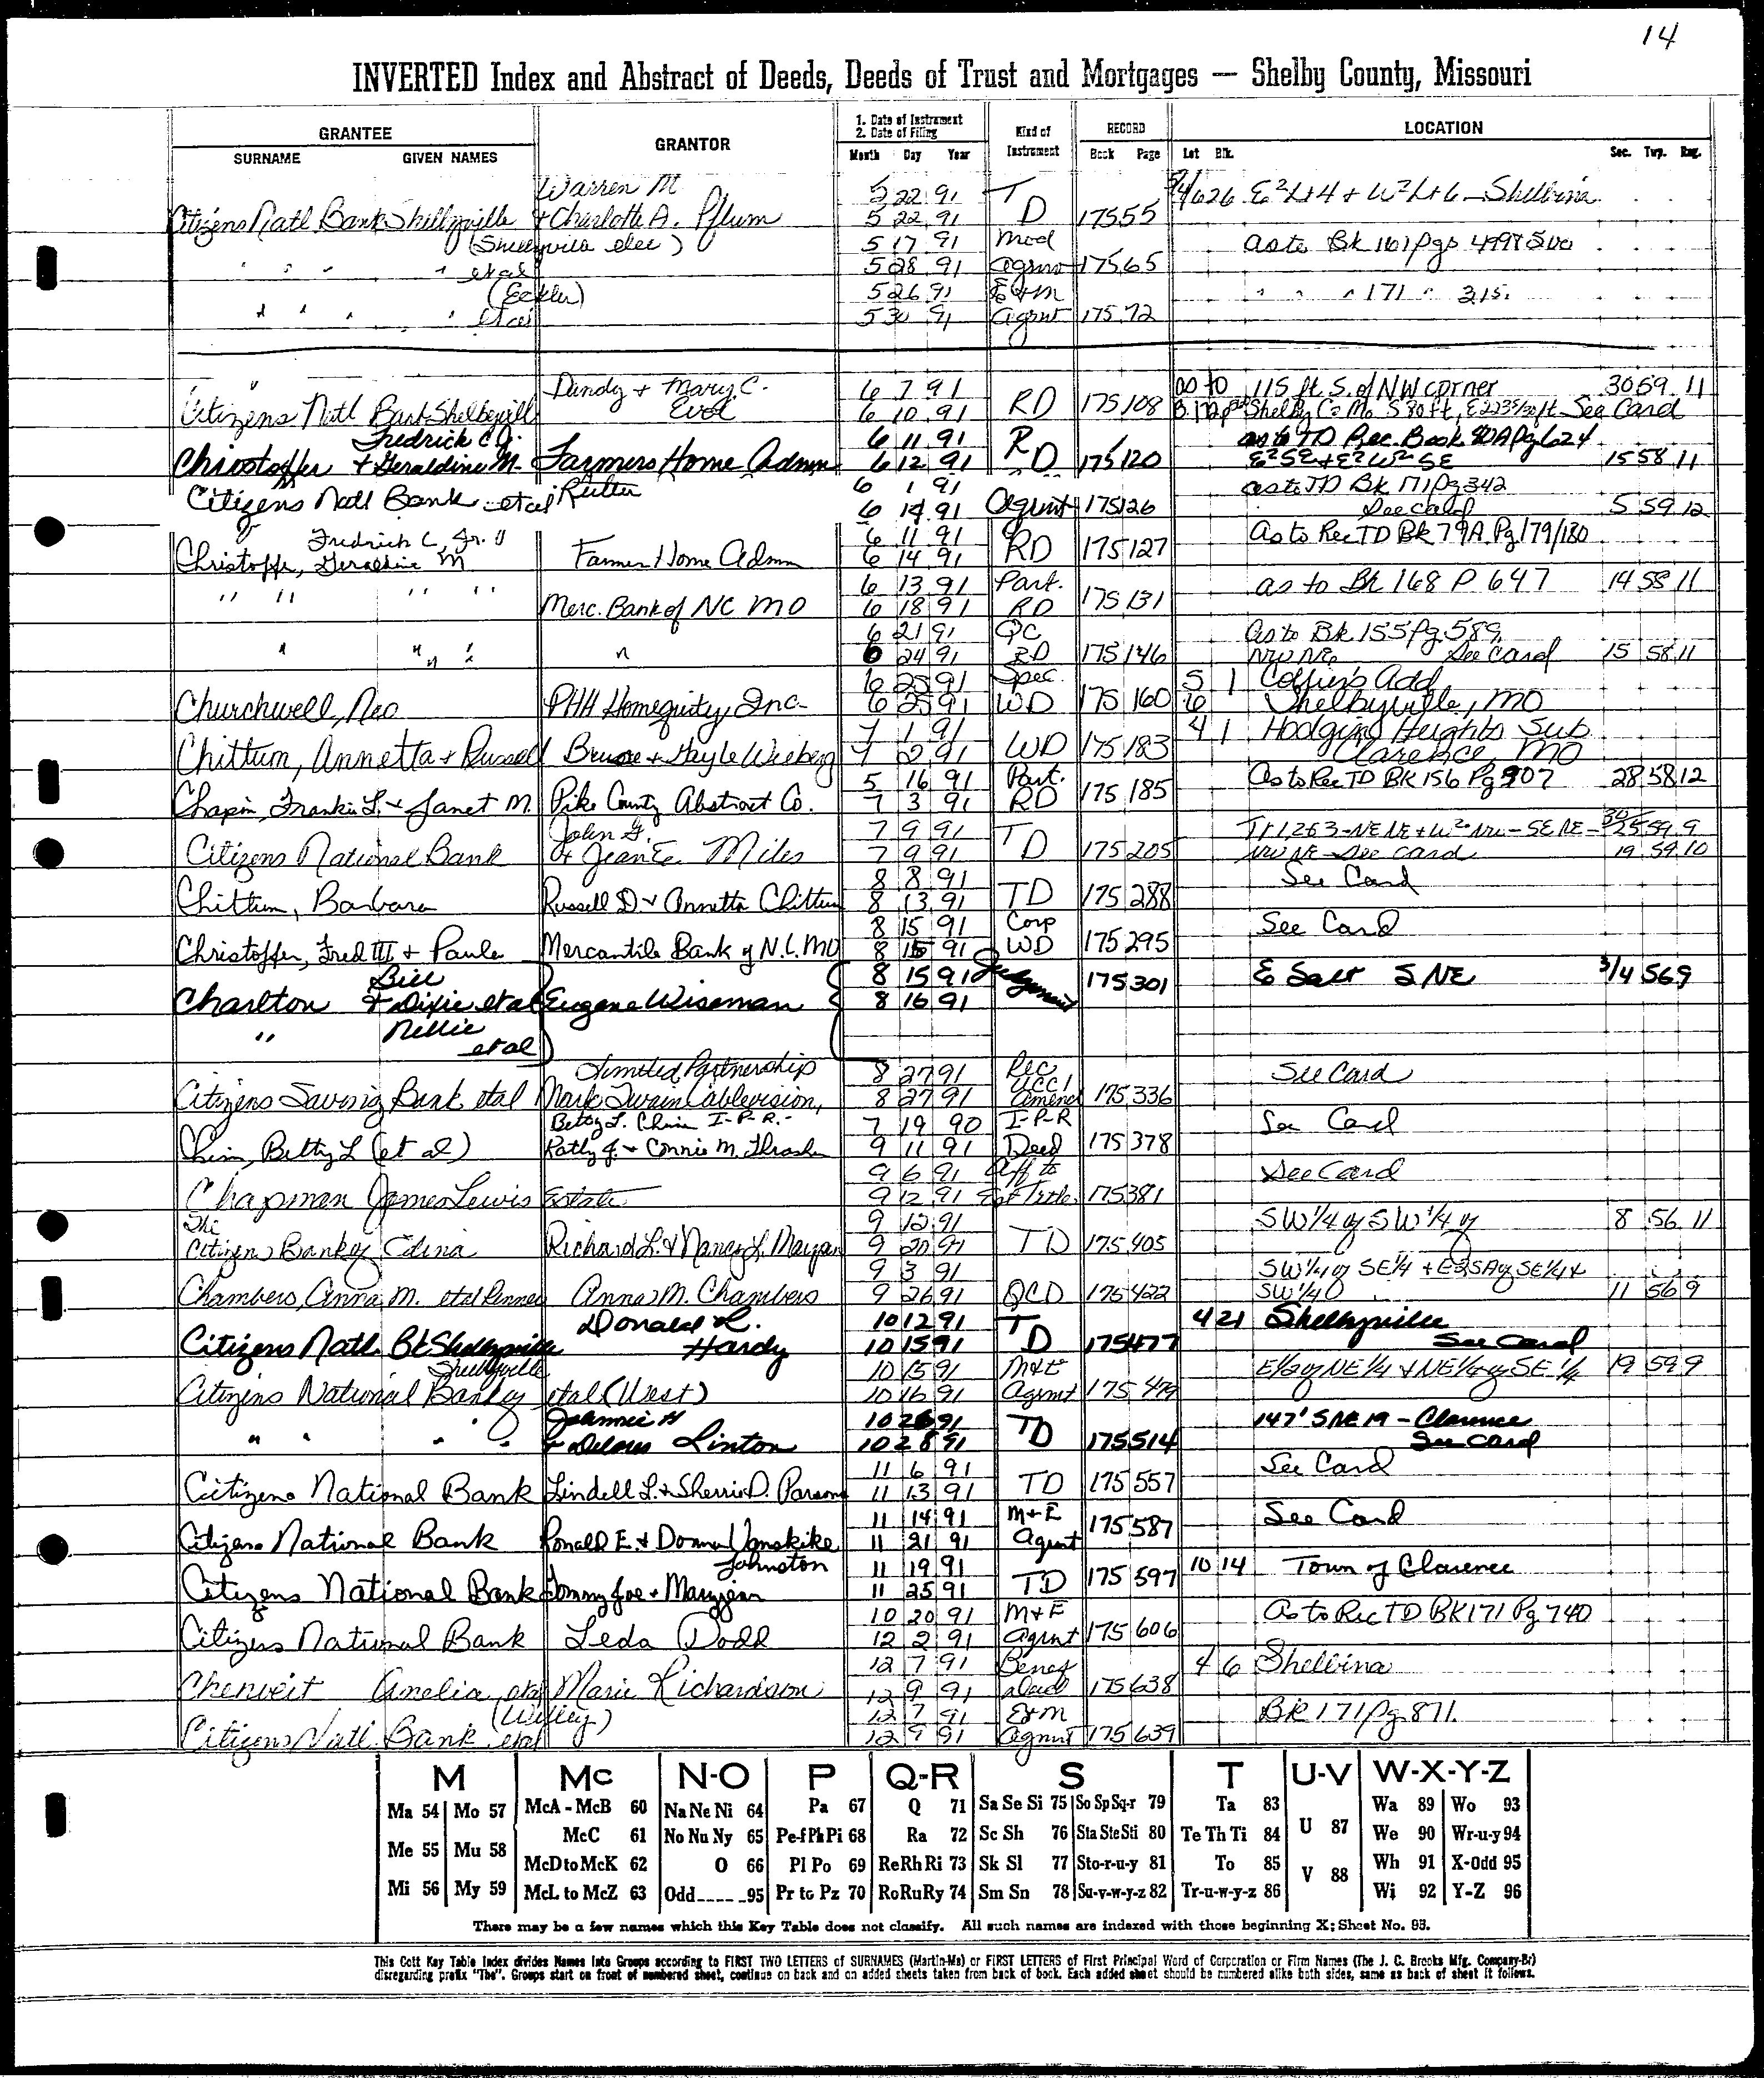 14
INVERTED Index and Abstract of Deeds, Deeds of Trust and Mortgages — Shelby County, Missouri
GRANTEE GRANTOR 1. Date of Instrument 2. Date of Filing Kind of Instrument RECORD LOCATION
SURNAME GIVEN NAMES Month Day Year Book Page Lot Blk. Sec. Twp. Rng.
Warren M 5 22 91 T E² Lt 4 + W² Lt 6 - Shelbina
Citizens Natl Bank Shelbyville + Charlotte A. Pflum 5 22 91 D 175 55
(Shelbyville elec) 5 17 91 Mod as to Bk 161 Pgs 499 & 500
" " " " etal 5 28 91 agrmt 175 65
(Eckler) 5 26 91 E+M " " " 171 " 315
" " " " etal 5 30 91 agrmt 175 72
" Dandy + Mary C. 6 7 91 as to 115 ft. S. of NW corner 30 59 11
Citizens Natl Bank Shelbyvill 6 10 91 RD 175 108 Shelby Co Mo S 80 ft, See Card
Fredrick C Jr. 6 11 91 R as to TD Rec. Book 80A Pg 624
Christoffer + Geraldine M. Farmers Home Admn 6 12 91 D 175 120 E² SE + E² W² SE 15 58 11
6 1 91 as to TD Bk 171 Pg 342
Citizens Natl Bank etal 6 14 91 Agrmt 175 126 See Card 5 59 12
Fredrich C, Jr. 6 11 91 As to Rec TD Bk 79A Pg 179/180
Christoffe, Geraldine M Farmer Home Admn 6 14 91 RD 175 127
" " " " 6 13 91 Part. as to Bk 168 P 647 14 58 11
Merc. Bank of NC MO 6 18 91 RD 175 131
6 21 91 QC as to Bk 155 Pg 589
" " " " 6 24 91 RD 175 146 NW NE See Card 15 58 11
6 25 91 Spec. 5 1 Coffier's Add
Churchwell, Neo PHH Homequity, Inc. 6 25 91 WD 175 160 6 Shelbyville, MO
7 1 91 4 1 Hodging Heights Sub
Chittum, Annetta + Russell Bruce + Gayle Wieberg 7 2 91 WD 175 183 Clarence, MO
5 16 91 Part. As to Rec TD BK 156 Pg 907 28 58 12
Chapin, Frankie L. + Janet M. Pike County Abstract Co. 7 3 91 RD 175 185
John G. 7 9 91 T NE NE + W² NW - SE NE 25 59 9
Citizens National Bank + Jean E. Miles 7 9 91 D 175 205 NW NE - See card 19 59 10
8 8 91 See Card
Chittum, Barbara Russell D. + Annetta Chittum 8 13 91 TD 175 288
8 15 91 Corp See Card
Christoffer, Fred III + Paula Mercantile Bank of N.C. MO 8 15 91 WD 175 295
Bill 8 15 91 Judgement 175 301 E Salt S NE 3/4 56 9
Charlton + Dixie etal Eugene Wiseman 8 16 91
" Nellie
etal
Limited Partnership 8 27 91 Rec See Card
Citizens Saving Bank etal Mark Twain Cablevision, 8 27 91 UCC1 Amend 175 336
Betty L. Chinn I-P-R.- 7 19 90 I-P-R See Card
Chinn, Betty L (et al) Kathy J. + Connie M. Thrasher 9 11 91 Deed 175 378
9 6 91 Aff to See Card
Chapman James Lewis Estate 9 12 91 Est Title 175 381
The 9 12 91 SW 1/4 of SW 1/4 of 8 56 11
Citizens Bank of Edina Richard L. + Nancy L. Mayan 9 20 91 TD 175 405
9 3 91 SW 1/4 of SE 1/4
Chambers, Anna M. etal Anna M. Chambers 9 26 91 QCD 175 422 SW 1/4 11 56 9
Donald L. 10 12 91 T 4 21 Shelbyville
Citizens Natl. Bk Shelbyville Hardy 10 15 91 D 175 477 See Card
Shelbyville 10 15 91 M+E E 1/2 of NE 1/4 + NE 1/4 of SE 1/4 19 59 9
Citizens National Bank of etal (West) 10 16 91 Agrmt 175 479
Johnnie H 10 26 91 147' S NE 19 - Clarence
" " " " + Delores Linton 10 28 91 TD 175 514 See Card
11 6 91 See Card
Citizens National Bank Lindell L. + Sherrie D. Parsons 11 13 91 TD 175 557
11 14 91 M+E See Card
Citizens National Bank Ronald E. + Donna Vanskike 11 21 91 Agrmt 175 587
Johnston 11 19 91 10 14 Town of Clarence
Citizens National Bank Tommy Joe + Maryjean 11 25 91 TD 175 597
10 20 91 M+E As to Rec TD BK 171 Pg 740
Citizens National Bank Leda Dodd 12 2 91 Agrmt 175 606
12 7 91 Benef 4 6 Shelbina
Chenoweit Amelia, etal Marie Richardson 12 9 91 Deed 175 638
12 7 91 E+M Bk 171 Pg 871.
Citizens Natl. Bank etal 12 9 91 Agmnt 175 639
M Mc N-O P Q-R S T U-V W-X-Y-Z
Ma 54 Mo 57 McA - McB 60 Na Ne Ni 64 Pa 67 Q 71 Sa Se Si 75 So Sp Sq-r 79 Ta 83 U 87 Wa 89 Wo 93
Me 55 Mu 58 McC 61 No Nu Ny 65 Pe-f Ph Pi 68 Ra 72 Sc Sh 76 Sta Ste Sti 80 Te Th Ti 84 We 90 Wr-u-y 94
McD to McK 62 O 66 Pl Po 69 Re Rh Ri 73 Sk Sl 77 Sto-r-u-y 81 To 85 V 88 Wh 91 X-Odd 95
Mi 56 My 59 McL to McZ 63 Odd----95 Pr to Pz 70 Ro Ru Ry 74 Sm Sn 78 Su-v-w-y-z 82 Tr-u-w-y-z 86 Wi 92 Y-Z 96
There may be a few names which this Key Table does not classify. All such names are indexed with those beginning X; Sheet No. 95.
This Cott Key Table Index divides Names Into Groups according to FIRST TWO LETTERS of SURNAMES (Martin-Ma) or FIRST LETTERS of First Principal Word of Corporation or Firm Names (The J. C. Brooks Mfg. Company-Br)
disregarding prefix "The". Groups start on front of numbered sheet, continue on back and on added sheets taken from back of book. Each added sheet should be numbered alike both sides, same as back of sheet it follows.